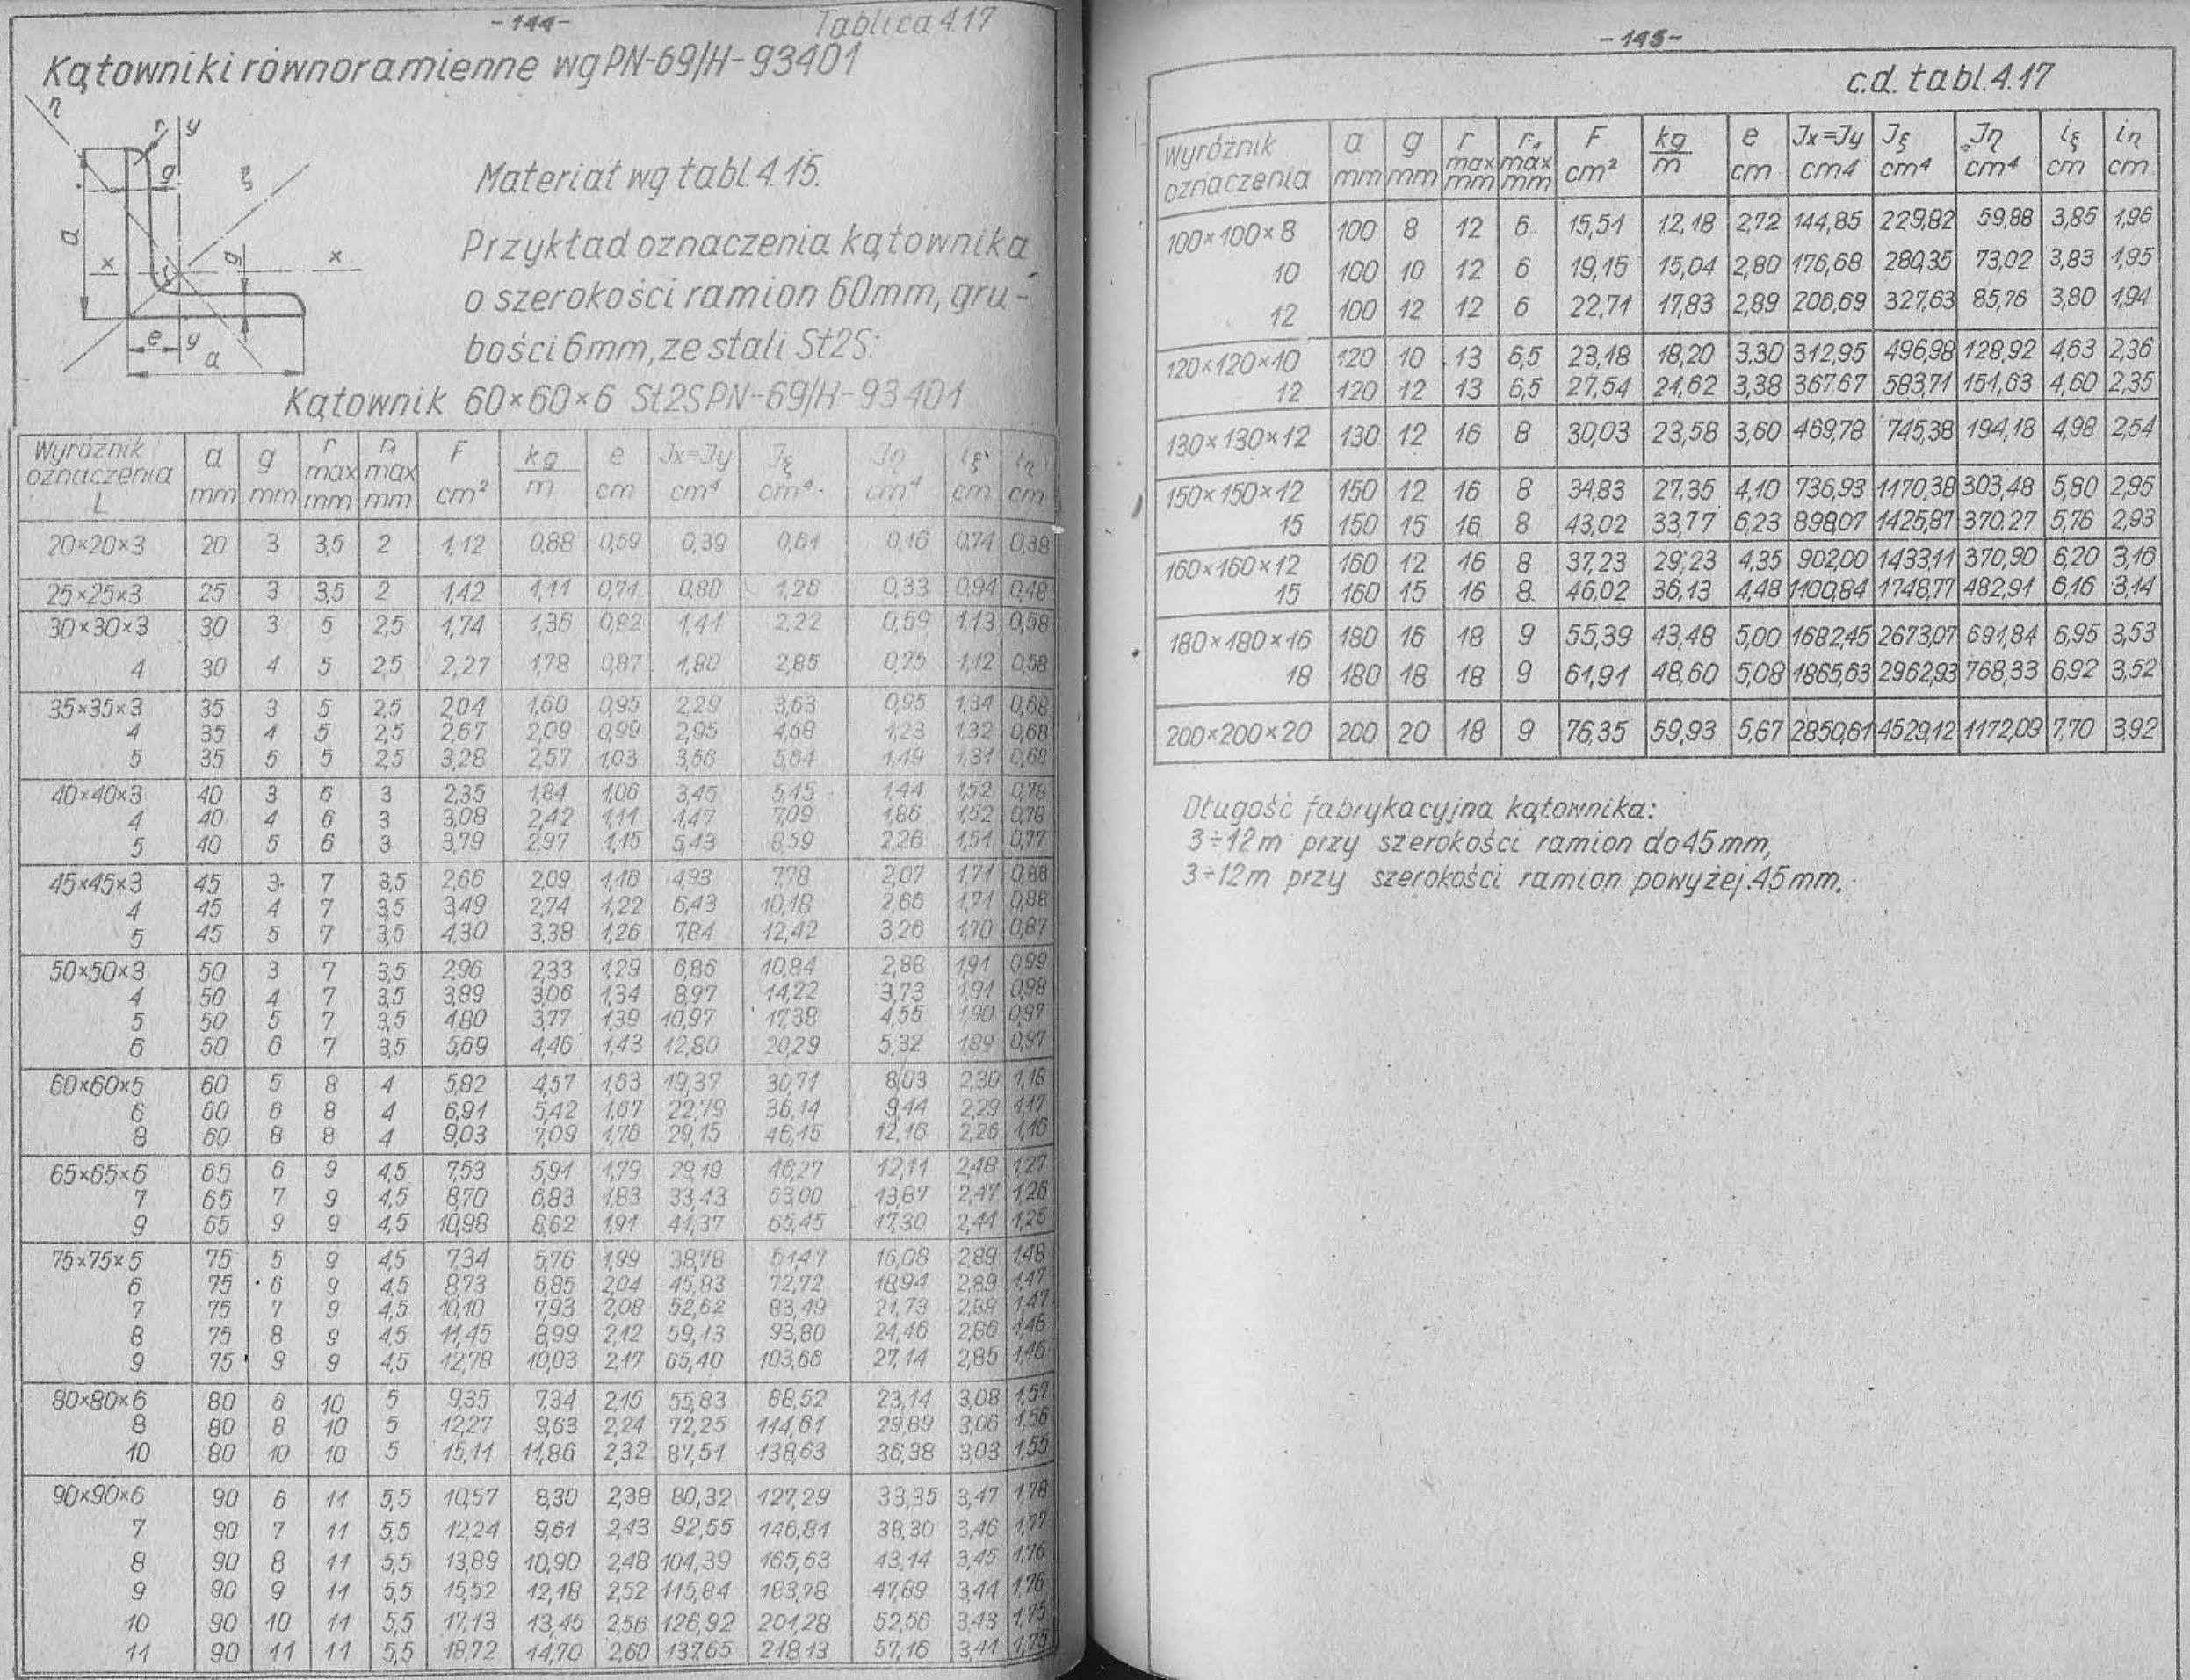 -144-
Tablica 4.17
Kątowniki równoramienne wg PN-69/H-93401
η
r₁ y
g
ξ
a
x
r
g
x
e y
a
Materiał wg tabl. 4.15.
Przykład oznaczenia kątownika
o szerokości ramion 60mm, gru-
bości 6mm, ze stali St2S:
Kątownik 60×60×6 St2S PN-69/H-93401
Wyróżnik oznaczenia L | a mm | g mm | r max mm | r₁ max mm | F cm² | kg/m | e cm | Jx=Jy cm⁴ | Jξ cm⁴ | Jη cm⁴ | iξ cm | iη cm
20×20×3 20 3 3,5 2 1,12 0,88 0,59 0,39 0,61 0,16 0,74 0,38
25×25×3 25 3 3,5 2 1,42 1,11 0,71 0,80 1,26 0,33 0,94 0,48
30×30×3 30 3 5 2,5 1,74 1,36 0,82 1,41 2,22 0,59 1,13 0,58
4 30 4 5 2,5 2,27 1,78 0,87 1,80 2,85 0,75 1,12 0,58
35×35×3 35 3 5 2,5 2,04 1,60 0,95 2,29 3,63 0,95 1,34 0,68
4 35 4 5 2,5 2,67 2,09 0,99 2,95 4,68 1,23 1,32 0,68
5 35 5 5 2,5 3,28 2,57 1,03 3,56 5,64 1,49 1,31 0,68
40×40×3 40 3 6 3 2,35 1,84 1,06 3,45 5,45 1,44 1,52 0,78
4 40 4 6 3 3,08 2,42 1,11 4,47 7,09 1,86 1,52 0,78
5 40 5 6 3 3,79 2,97 1,15 5,43 8,59 2,26 1,51 0,77
45×45×3 45 3 7 3,5 2,66 2,09 1,18 4,93 7,78 2,07 1,71 0,88
4 45 4 7 3,5 3,49 2,74 1,22 6,43 10,18 2,66 1,71 0,88
5 45 5 7 3,5 4,30 3,38 1,26 7,84 12,42 3,26 1,70 0,87
50×50×3 50 3 7 3,5 2,96 2,33 1,29 6,86 10,84 2,88 1,91 0,99
4 50 4 7 3,5 3,89 3,06 1,34 8,97 14,22 3,73 1,91 0,98
5 50 5 7 3,5 4,80 3,77 1,39 10,97 17,38 4,55 1,90 0,97
6 50 6 7 3,5 5,69 4,46 1,43 12,80 20,29 5,32 1,89 0,97
60×60×5 60 5 8 4 5,82 4,57 1,63 19,37 30,71 8,03 2,30 1,18
6 60 6 8 4 6,91 5,42 1,67 22,79 36,14 9,44 2,29 1,17
8 60 8 8 4 9,03 7,09 1,76 29,15 46,15 12,16 2,26 1,16
65×65×6 65 6 9 4,5 7,53 5,91 1,79 29,19 46,27 12,11 2,48 1,27
7 65 7 9 4,5 8,70 6,83 1,83 33,43 53,00 13,87 2,47 1,26
9 65 9 9 4,5 10,98 8,62 1,91 41,37 65,45 17,30 2,44 1,26
75×75×5 75 5 9 4,5 7,34 5,76 1,99 38,78 61,47 16,08 2,89 1,48
6 75 6 9 4,5 8,73 6,85 2,04 45,83 72,72 18,94 2,89 1,47
7 75 7 9 4,5 10,10 7,93 2,08 52,62 83,49 21,73 2,88 1,47
8 75 8 9 4,5 11,45 8,99 2,12 59,13 93,80 24,46 2,86 1,46
9 75 9 9 4,5 12,78 10,03 2,17 65,40 103,66 27,14 2,85 1,46
80×80×6 80 6 10 5 9,35 7,34 2,15 55,83 88,52 23,14 3,08 1,57
8 80 8 10 5 12,27 9,63 2,24 72,25 114,61 29,89 3,06 1,56
10 80 10 10 5 15,11 11,86 2,32 87,51 138,63 36,38 3,03 1,55
90×90×6 90 6 11 5,5 10,57 8,30 2,38 80,32 127,29 33,35 3,47 1,78
7 90 7 11 5,5 12,24 9,61 2,43 92,55 146,81 38,30 3,46 1,77
8 90 8 11 5,5 13,89 10,90 2,48 104,39 165,63 43,14 3,45 1,76
9 90 9 11 5,5 15,52 12,18 2,52 115,84 183,78 47,89 3,44 1,76
10 90 10 11 5,5 17,13 13,45 2,56 126,92 201,28 52,56 3,43 1,75
11 90 11 11 5,5 18,72 14,70 2,60 137,65 218,13 57,16 3,41 1,75
-145-
c.d. tabl. 4.17
Wyróżnik oznaczenia | a mm | g mm | r max mm | r₁ max mm | F cm² | kg/m | e cm | Jx=Jy cm4 | Jξ cm⁴ | Jη cm⁴ | iξ cm | iη cm
100×100×8 100 8 12 6 15,51 12,18 2,72 144,85 229,82 59,88 3,85 1,96
10 100 10 12 6 19,15 15,04 2,80 176,68 280,35 73,02 3,83 1,95
12 100 12 12 6 22,71 17,83 2,89 206,69 327,63 85,76 3,80 1,94
120×120×10 120 10 13 6,5 23,18 18,20 3,30 312,95 496,98 128,92 4,63 2,36
12 120 12 13 6,5 27,54 21,62 3,38 367,67 583,71 151,63 4,60 2,35
130×130×12 130 12 16 8 30,03 23,58 3,60 469,78 745,38 194,18 4,98 2,54
150×150×12 150 12 16 8 34,83 27,35 4,10 736,93 1170,38 303,48 5,80 2,95
15 150 15 16 8 43,02 33,77 6,23 898,07 1425,87 370,27 5,76 2,93
160×160×12 160 12 16 8 37,23 29,23 4,35 902,00 1433,11 370,90 6,20 3,16
15 160 15 16 8 46,02 36,13 4,48 1100,84 1748,77 482,91 6,16 3,14
180×180×16 180 16 18 9 55,39 43,48 5,00 1682,45 2673,07 691,84 6,95 3,53
18 180 18 18 9 61,91 48,60 5,08 1865,63 2962,93 768,33 6,92 3,52
200×200×20 200 20 18 9 76,35 59,93 5,67 2850,61 4529,12 1172,09 7,70 3,92
Długość fabrykacyjna kątownika:
3÷12m przy szerokości ramion do 45mm,
3÷12m przy szerokości ramion powyżej 45mm.